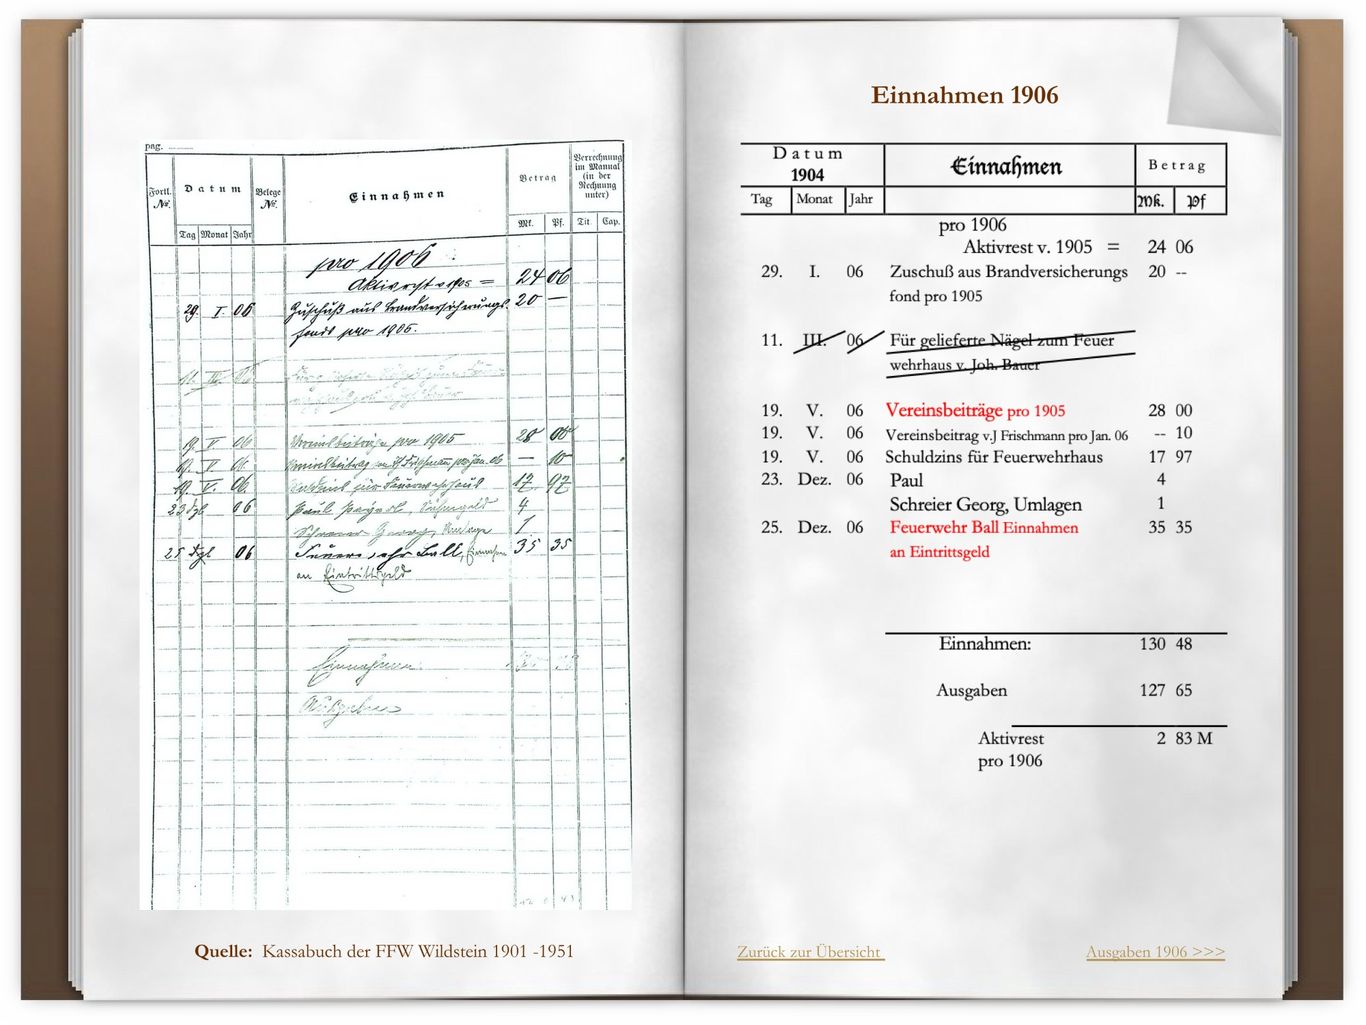 pag.
Fortl. No.
Datum
Belege No.
Einnahmen
Betrag
Verrechnung im Manual (in der Rechnung unter)
Tag Monat Jahr
Mk. Pf. Tit. Cap.
pro 1906
Aktivrest v. 1905 = 24 06
29. I. 06 Zuschuß aus Brandversicherungs- 20 —
fonds pro 1905.
19. V. 06 Vereinsbeiträge pro 1905 28 00
19. V. 06. Vereinsbeitrag v. J Frischmann pro Jan. 06 — 10
19. V. 06. Schuldzins für Feuerwehrhaus 17. 97
23 Dzl 06 Paul 4
Georg, Umlage 1
25 Dzl 06 Feuerwehr Ball, Einnahmen 35 35
an Eintrittsgeld
Einnahmen
Ausgaben
Quelle: Kassabuch der FFW Wildstein 1901 -1951
Einnahmen 1906
Datum
1904
Einnahmen
Betrag
Tag Monat Jahr Mk. Pf
pro 1906
Aktivrest v. 1905 = 24 06
29. I. 06 Zuschuß aus Brandversicherungs 20 --
fond pro 1905
11. III. 06 Für gelieferte Nägel zum Feuer
wehrhaus v. Joh. Bauer
19. V. 06 Vereinsbeiträge pro 1905 28 00
19. V. 06 Vereinsbeitrag v.J Frischmann pro Jan. 06 -- 10
19. V. 06 Schuldzins für Feuerwehrhaus 17 97
23. Dez. 06 Paul 4
Schreier Georg, Umlagen 1
25. Dez. 06 Feuerwehr Ball Einnahmen 35 35
an Eintrittsgeld
Einnahmen: 130 48
Ausgaben 127 65
Aktivrest 2 83 M
pro 1906
Zurück zur Übersicht
Ausgaben 1906 >>>